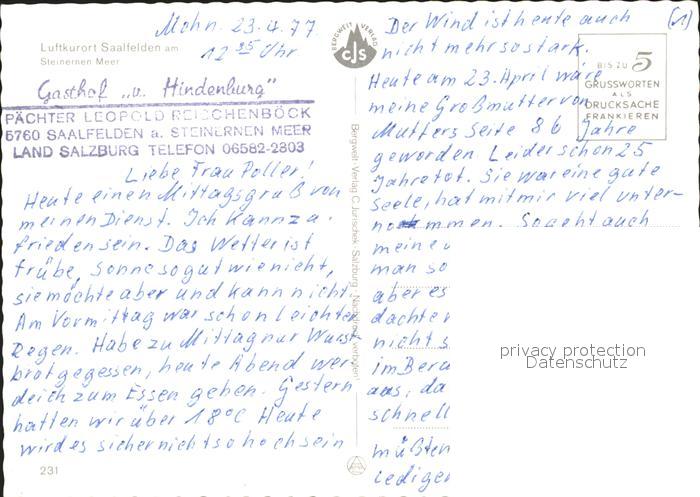 Mohn. 23.4.77
12 35 Uhr
Luftkurort Saalfelden am
Steinernen Meer
Gasthof „v. Hindenburg"
PÄCHTER LEOPOLD REISCHENBÖCK
5760 SAALFELDEN a. STEINERNEN MEER
LAND SALZBURG TELEFON 06582-2803
Liebe Frau Poller!
Heute einen Mittagsgruß von
meinen Dienst. Ich kann zu-
frieden sein. Das Wetter ist
trübe, Sonne so gut wie nicht,
sie möchte aber und kann nicht.
Am Vormittag war schon leichter
Regen. Habe zu Mittag nur Wurst-
brot gegessen, heute Abend wer-
de ich zum Essen gehen. Gestern
hatten wir über 18°C Heute
wird es sicher nicht so hoch sein
231
BERGWELT VERLAG
CJS
Bergwelt-Verlag C. Jurischek, Salzburg, Nachdruck verboten!
(1)
Der Wind ist heute auch
nicht mehr so stark.
Heute am 23. April wäre
meine Großmutter von
Mutters Seite 86 Jahre
geworden. Leider schon 25
Jahre tot. Sie war eine gute
Seele, hat mit mir viel unter-
nommen. So geht auch
meine
man so
aber es
dachte
nicht s
im Beru
aus, da
schnell
müßten
lediger
BIS ZU 5
GRUSSWORTEN
ALS
DRUCKSACHE
FRANKIEREN
privacy protection
Datenschutz